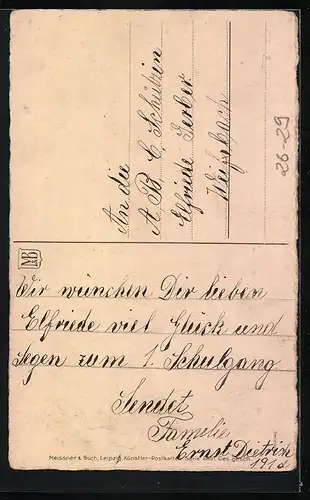 An die
A B C Schützin
Elfriede Gerber
Weißbach
26-29
MB
Wir wünchen Dir lieben
Elfriede viel Glück und
Segen zum 1. Schulgang
Sendet
Familie
Ernst Dietrich
Meissner & Buch, Leipzig, Künstler-Postkarten